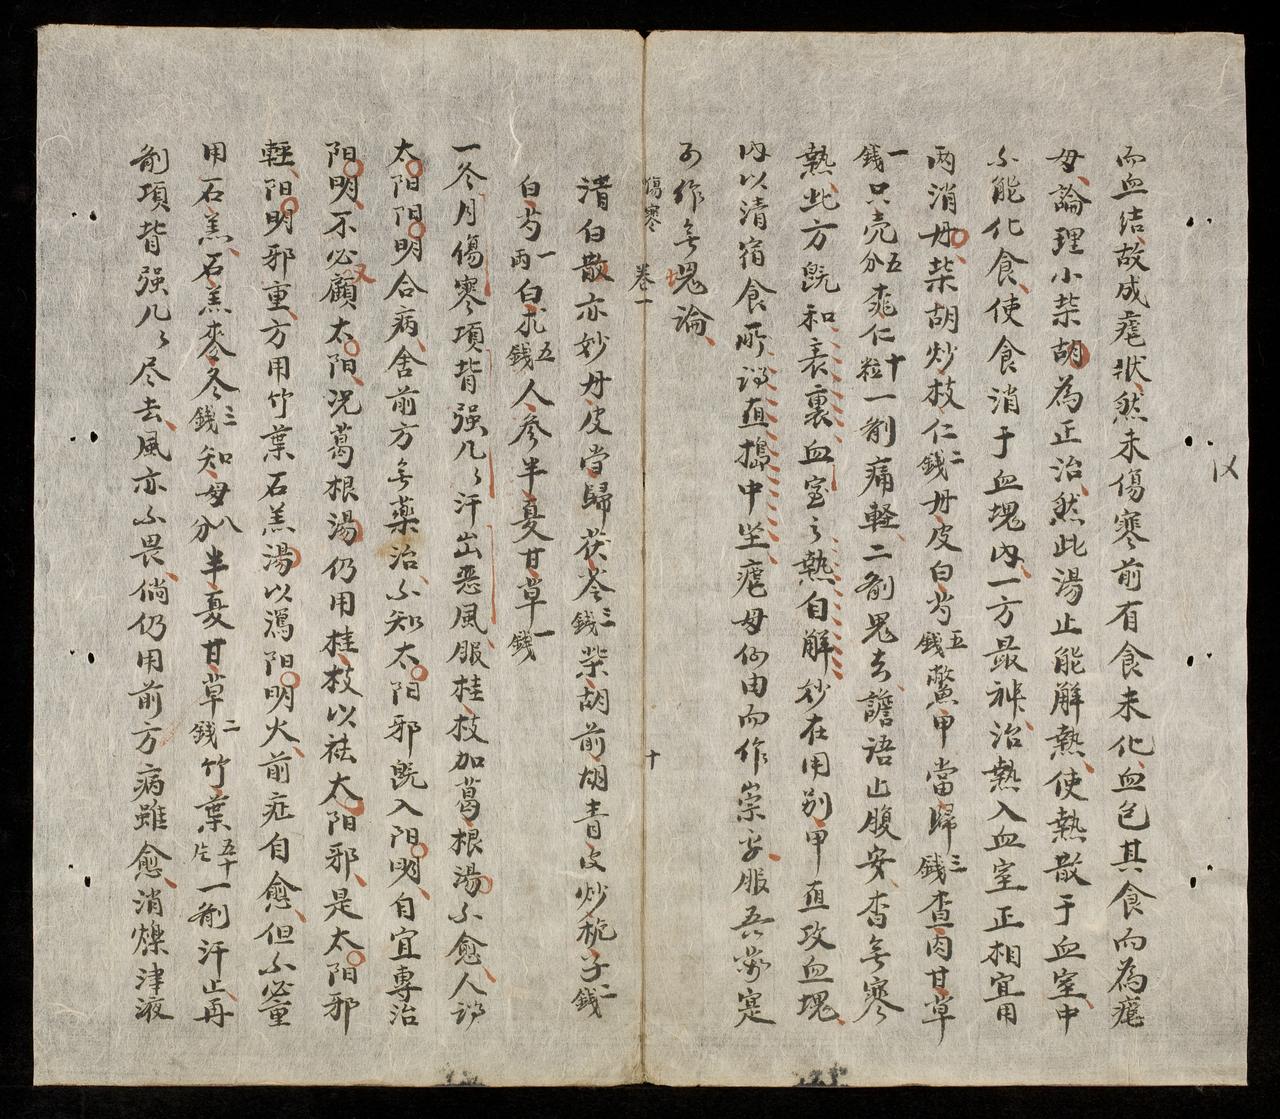 而血結故成瘧狀然未傷寒前有食未化血包其食而為瘧
母論理小柴胡為正治然此湯止能解熱使熱散于血室中
不能化食使食消于血塊內一方最神治熱入血室正相宜用
兩消丹柴胡炒枝仁二錢丹皮白芍五錢鱉甲當歸三錢查肉甘草
一錢只壳五分桃仁十粒一剤痛輕二剤鬼去譫語止腹安杳無寒
熱此方既和表裏血室之熱自解妙在用别甲直攻血塊
內以清宿食所謂直搗中坚瘧母何由而作崇乎服吾藥寔
可作無塊論
傷寒 卷一 十
清白散亦妙丹皮當歸茯苓三錢柴胡前胡青皮炒梔子二錢
白芍一兩白朮五錢人參半夏甘草一錢
一冬月傷寒項背强几々汗出惡風服桂枝加葛根湯不愈人謂
太阳阳明合病舍前方無藥治不知太阳邪既入阳明自宜專治
阳明不必又顧太阳况葛根湯仍用桂枝以祛太阳邪是太阳邪
輕阳明邪重方用竹葉石羔湯以瀉阳明火前症自愈但不必重
用石羔石羔麥冬三錢知母八分半夏甘草二錢竹葉五十片一剤汗止再
剤項背强几々尽去風亦不畏倘仍用前方病雖愈消爍津液